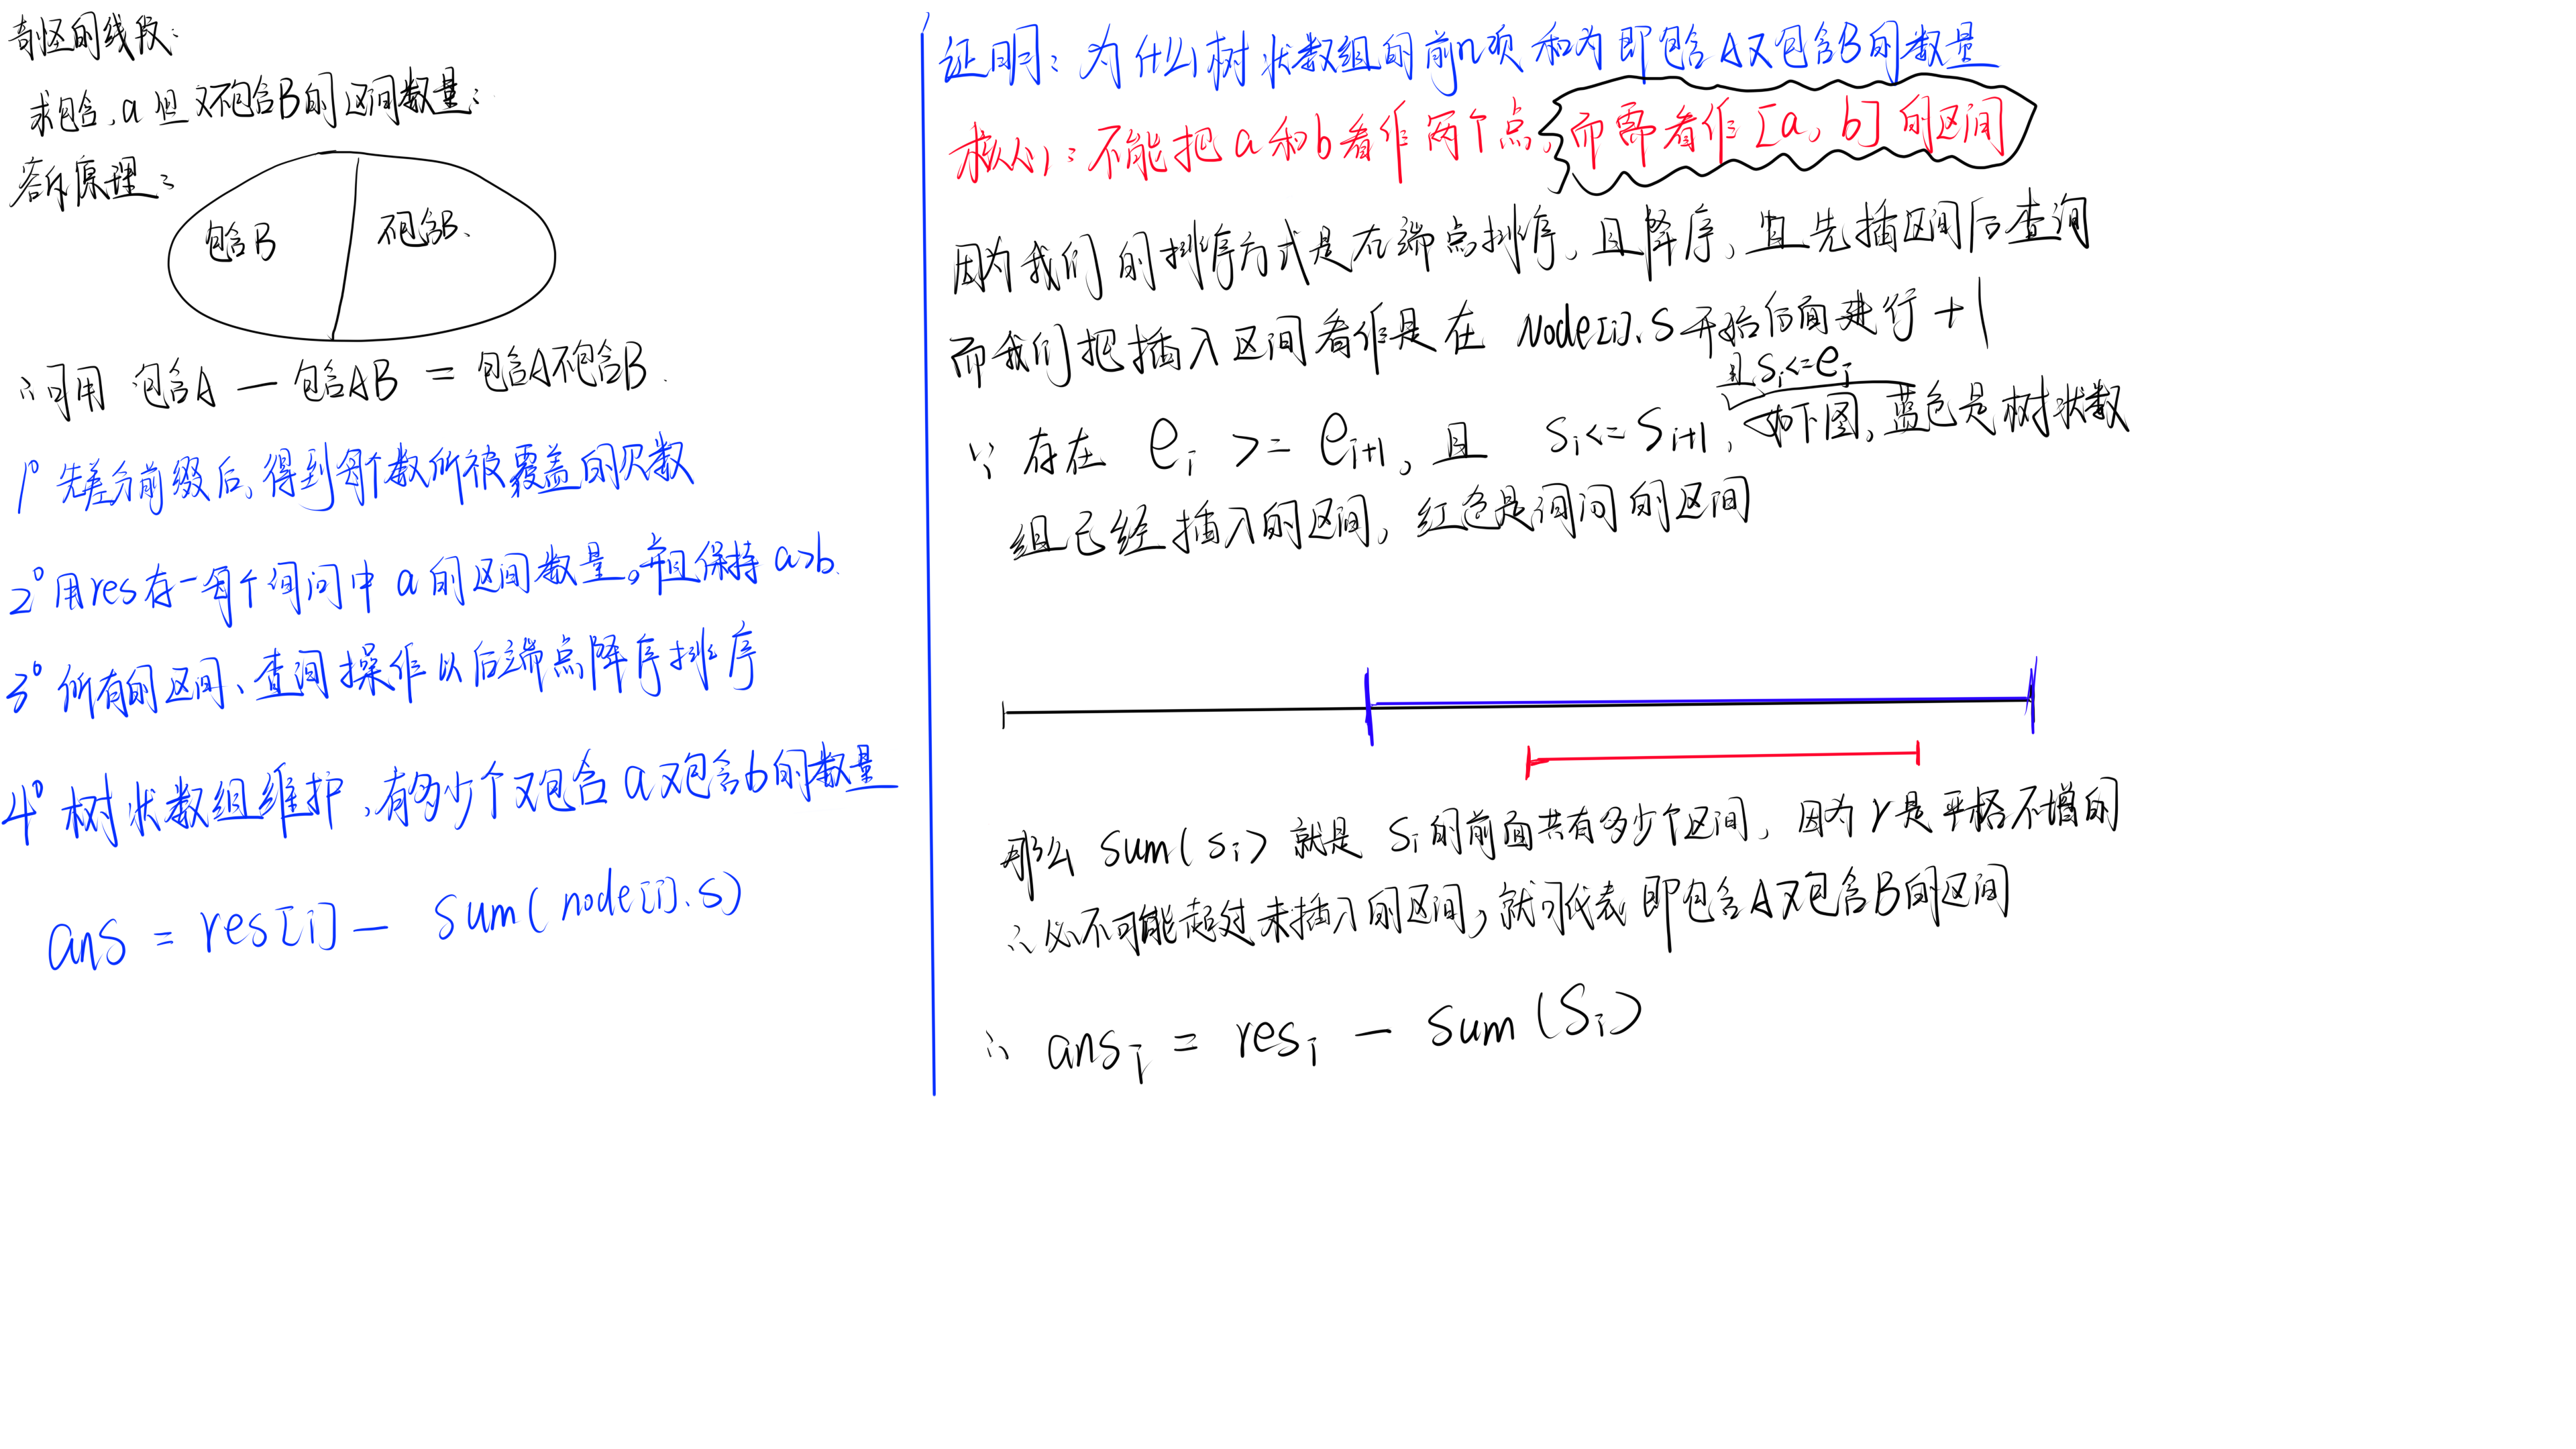 奇怪的线段:
求包含,a但又不包含B的区间数量:
容斥原理:
包含B
不包含B、
∴可用 包含A — 包含AB = 包含A不包含B.
1° 先差分前缀后,得到每个数所被覆盖的次数
2° 用res存一每个询问中 a 的区间数量。并且保持 a>b.
3° 所有的区间、查询操作以后端点降序排序
4° 树状数组维护,有多少个又包含a又包含b的数量
ans = res[i] — sum(node[i].s)
证明: 为什么树状数组的前n项和为即包含A又包含B的数量
核心: 不能把a和b看作两个点,而需看作[a, b]的区间
因为我们的排序方式是右端点排序,且降序,且先插区间后查询
而我们把插入区间看作是在 Node[i].s开始后面进行+1
且si<=ei
∵ 存在 ei >= ei+1,且 si<=si+1,如下图,蓝色是树状数
组已经插入的区间,红色是询问的区间
那么 sum(si) 就是 si的前面共有多少个区间,因为r是严格不增的
∴必不可能超过未插入的区间,就可代表即包含A又包含B的区间
∴ ansi = resi — sum(Si)